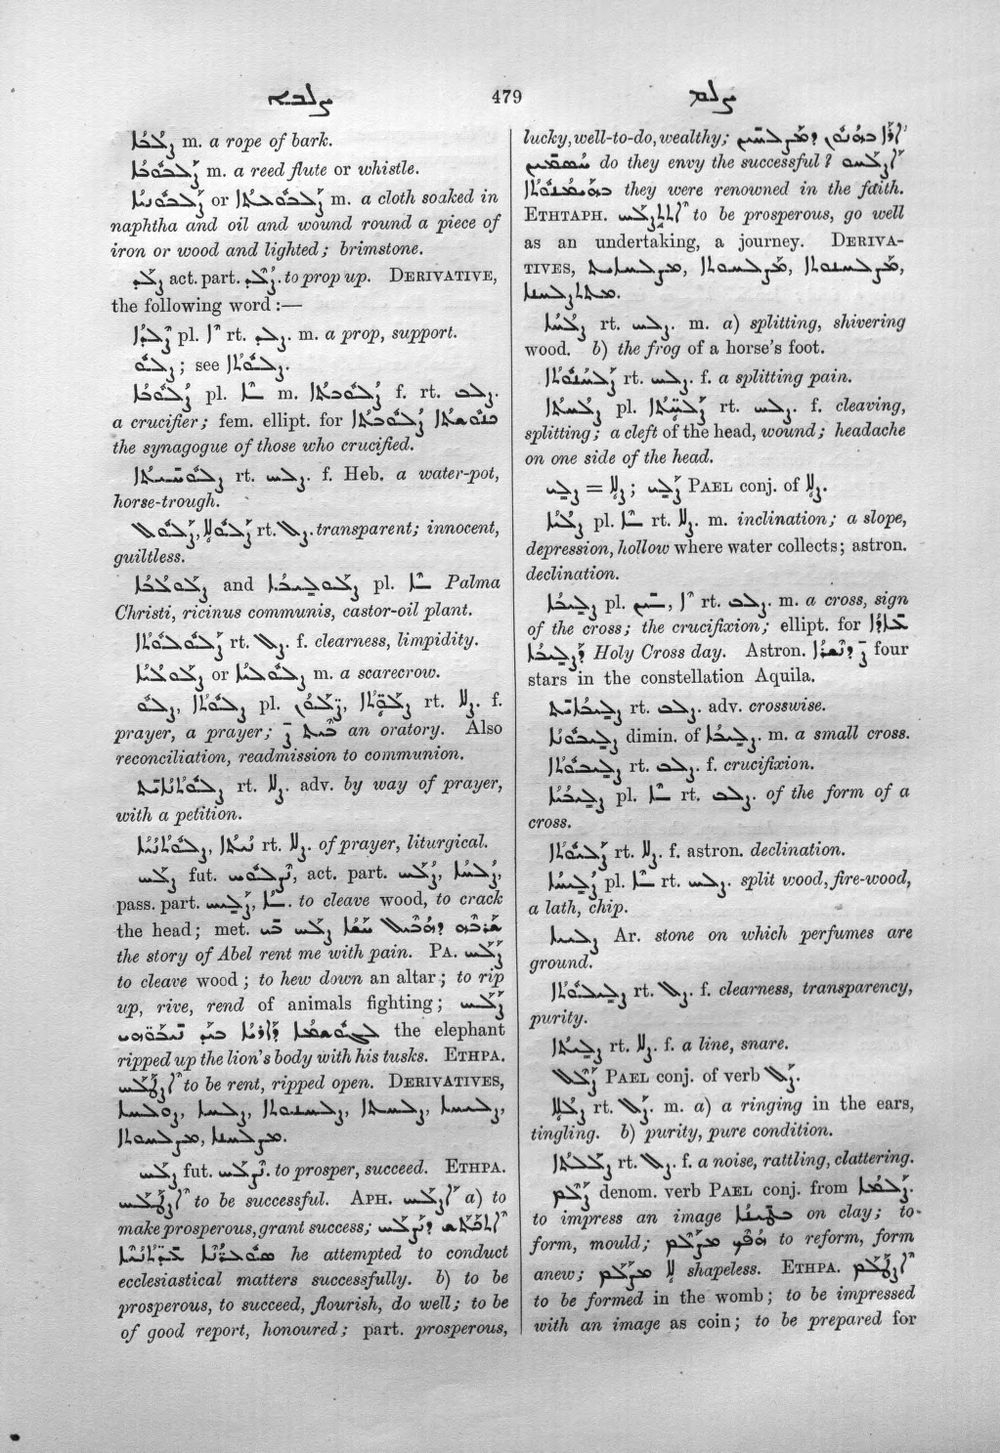 ܨܠܒܐ 479 ܨܠܡ
ܨܠܒܐ m. a rope of bark.
ܨܠܒܘܒܐ m. a reed flute or whistle.
or m. a cloth soaked in
naphtha and oil and wound round a piece of
iron or wood and lighted; brimstone.
ܨܠܕ act. part. ܨܠܕ. to prop up. DERIVATIVE,
the following word:—
ܨܠܕܐ pl. rt. ܨܠܕ. m. a prop, support.
ܨܠܘ; see ܨܠܘܬܐ.
ܨܠܘܒܐ pl. m. ܨܠܘܒܬܐ f. rt. ܨܠܒ.
a crucifier; fem. ellipt. for ܟܢܘܫܬܐ ܨܠܘܒܬܐ
the synagogue of those who crucified.
ܨܠܘܚܝܬܐ rt. ܨܠܚ. f. Heb. a water-pot,
horse-trough.
ܨܠܘܠ, ܨܠܘܠܐ rt. ܨܠ. transparent; innocent,
guiltless.
and pl. Palma
Christi, ricinus communis, castor-oil plant.
ܨܠܘܠܘܬܐ rt. ܨܠ. f. clearness, limpidity.
or m. a scarecrow.
ܨܠܘ, ܨܠܘܬܐ pl. ܨܠܘܢ, ܨܠܘܬܐ rt. ܨܠܐ. f.
prayer, a prayer; ܒܝܬ ܨ an oratory. Also
reconciliation, readmission to communion.
ܨܠܘܬܢܐܝܬ rt. ܨܠܐ. adv. by way of prayer,
with a petition.
ܨܠܘܬܢܝܐ, ܢܝܬܐ rt. ܨܠܐ. of prayer, liturgical.
ܨܠܚ fut. ܢܨܠܘܚ, act. part. ܨܠܚ, ܨܠܚܐ,
pass. part. ܨܠܝܚ, ܐ. to cleave wood, to crack
the head; met. ܫܪܒܗ ܕܗܒܝܠ ܚܫܐ ܨܠܚ ܒܝ
the story of Abel rent me with pain. PA. ܨܠܚ
to cleave wood; to hew down an altar; to rip
up, rive, rend of animals fighting; ܨܠܚ
ܠܓܘܫܡܐ ܕܐܪܝܐ ܒܝܕ ܢܝܒܘܗܝ the elephant
ripped up the lion's body with his tusks. ETHPA.
ܐܨܛܠܚ to be rent, ripped open. DERIVATIVES,
ܨܠܝܚܐ, ܨܠܚܬܐ, ܨܠܚܢܘܬܐ, ܨܠܚܐ, ܨܘܠܚܐ
ܡܨܠܚܢܐ, ܡܨܠܚܘܬܐ.
ܨܠܚ fut. ܢܨܠܚ. to prosper, succeed. ETHPA.
ܐܨܛܠܚ to be successful. APH. ܐܨܠܚ a) to
make prosperous, grant success; ܐܬܟܬܫ ܕܢܨܠܚ
ܣܘܥܪܢܐ ܥܕܬܢܝܐ he attempted to conduct
ecclesiastical matters successfully. b) to be
prosperous, to succeed, flourish, do well; to be
of good report, honoured; part. prosperous,
lucky, well-to-do, wealthy; ܕܡܨܠܚܝܢ
do they envy the successful? ܐܨܠܚܘ
ܒܗܝܡܢܘܬܐ they were renowned in the faith.
ETHTAPH. ܐܬܬܨܠܚ to be prosperous, go well
as an undertaking, a journey. DERIVA-
TIVES, ܡܨܠܚܐܝܬ, ܡܨܠܚܘܬܐ, ܡܨܠܚܢܘܬܐ,
ܡܬܬܨܠܚܢܐ.
ܨܠܚܐ rt. ܨܠܚ. m. a) splitting, shivering
wood. b) the frog of a horse's foot.
ܨܠܚܢܘܬܐ rt. ܨܠܚ. f. a splitting pain.
ܨܠܚܬܐ pl. ܨܠܚܬܐ rt. ܨܠܚ. f. cleaving,
splitting; a cleft of the head, wound; headache
on one side of the head.
ܨܠܝ = ܨܠܐ; ܨܠܝ PAEL conj. of ܨܠܐ.
ܨܠܝܐ pl. rt. ܨܠܐ. m. inclination; a slope,
depression, hollow where water collects; astron.
declination.
ܨܠܝܒܐ pl. rt. ܨܠܒ. m. a cross, sign
of the cross; the crucifixion; ellipt. for ܥܐܕܐ
ܕܨܠܝܒܐ Holy Cross day. Astron. four
stars in the constellation Aquila.
ܨܠܝܒܐܝܬ rt. ܨܠܒ. adv. crosswise.
ܨܠܝܒܘܢܐ dimin. of ܨܠܝܒܐ. m. a small cross.
ܨܠܝܒܘܬܐ rt. ܨܠܒ. f. crucifixion.
ܨܠܝܒܝܐ pl. rt. ܨܠܒ. of the form of a
cross.
ܨܠܝܘܬܐ rt. ܨܠܐ. f. astron. declination.
ܨܠܝܚܐ pl. rt. ܨܠܚ. split wood, fire-wood,
a lath, chip.
Ar. stone on which perfumes are
ground.
ܨܠܝܠܘܬܐ rt. ܨܠ. f. clearness, transparency,
purity.
ܨܠܝܬܐ rt. ܨܠܐ. f. a line, snare.
ܨܠܠ PAEL conj. of verb ܨܠ.
ܨܠܠܐ rt. ܨܠ. m. a) a ringing in the ears,
tingling. b) purity, pure condition.
ܨܠܠܬܐ rt. ܨܠ. f. a noise, rattling, clattering.
ܨܠܡ denom. verb PAEL conj. from ܨܠܡܐ.
to impress an image ܒܛܝܢܐ on clay; to
form, mould; ܗܦܟ ܡܨܠܡ to reform, form
anew; ܠܐ ܡܨܠܡ shapeless. ETHPA. ܐܨܛܠܡ
to be formed in the womb; to be impressed
with an image as coin; to be prepared for